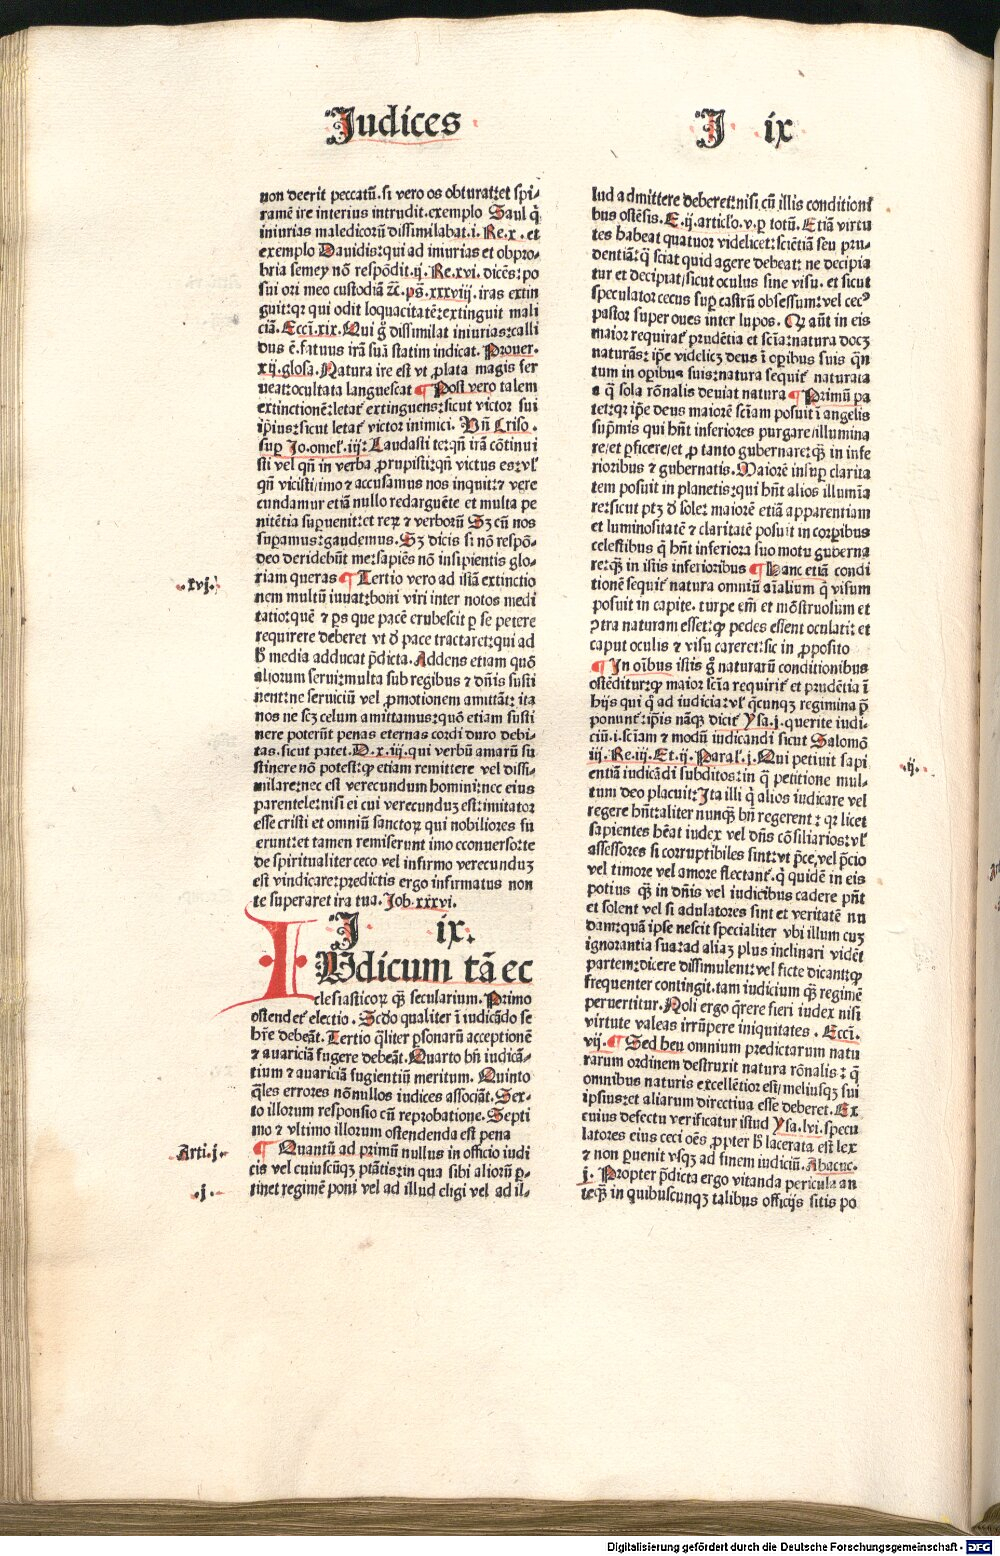 Judices
J ix
non deerit peccatū. si vero os obturat: et spi-
ramē ire interius intrudit. exemplo Saul q̄
iniurias maledicorū dissimilabat. i. Re. x. et
exemplo Dauidis: qui ad iniurias et obpro-
bria semey nō respōdit. ij. Re. xvi. dicēs: po
sui ori meo custodiā ⁊c. ps̄. xxxviij. iras extin
guit: qr qui odit loquacitatē: extinguit mali
ciā. Eccī. xix. Qui g̊ dissimilat iniurias: calli
dus ē. fatuus irā suā statim indicat. Prouer.
xij. glosa. Natura ire est vt ꝓlata magis fer
ueat: occultata languescat ¶ Post vero talem
extinctionē: letat᷑ extinguens: sicut victor sui
ip̄ius: sicut letat᷑ victor inimici. Vn̄ Criso.
sup̄ Jo. omel᷑. iij: Laudasti te: qn̄ irā cōtinui
sti vel qn̄ in verba ꝓrupisti: qn̄ victus es: vl᷑
qn̄ vicisti/imo ⁊ accusamus nos inquit: ⁊ vere
cundamur etiā nullo redarguēte et multa pe
nitētia sup̄uenit: et reꝝ ⁊ verborū Sꝫ cū nos
sup̄amus: gaudemus. Sꝫ dicis si nō respō-
deo deridebūt me: sapiēs nō insipientis glo-
riam queras ¶ Tertio vero ad istā extinctio
nem multū iuuat: boni viri inter notos medi
tatio: quē ⁊ p̄s que pacē erubescit ꝑ se petere
requirere deberet vt d̓ pace tractaret: qui ad
h̓ media adducat p̄dicta. Addens etiam quō
aliorum serui: multa sub regibus ⁊ dn̄is susti
nent: ne seruiciū vel ꝓmotionem amittāt: ita
nos ne scꝫ celum amittamus: quō etiam susti
nere poterūt penas eternas cordi duro debi-
tas. sicut patet. D. x. iij. qui verbū amarū su
stinere nō potest: ꝙ etiam remittere vel dissi-
milare: nec est verecundum homini: nec eius
parentele: nisi ei cui verecunduꝫ est: imitator
esse cristi et omniū sanctoꝝ qui nobiliores fu
erunt: et tamen remiserunt imo econuerso: te
de spiritualiter ceco vel infirmo verecunduꝫ
est vindicare: predictis ergo infirmatus non
te superaret ira tua. Job. xxxvi.
J ix.
IVdicum tā ec
clesiasticoꝝ qꝫ secularium. Primo
ostendet᷑ electio. Scdo qualiter ī iudicādo se
hr̄e debeāt. Tertio q̄liter ꝑsonarū acceptionē
⁊ auariciā fugere debeāt. Quarto bn̄ iudicā-
tium ⁊ auariciā fugientiū meritum. Quinto
q̄les errores nōnullos iudices associāt. Sex-
to illorum responsio cū reprobatione. Septi
mo ⁊ vltimo illorum ostendenda est pena
¶ Quantū ad primū nullus in officio iudi
cis vel cuiuscūqꝫ p̄tātis: in qua sibi aliorū ꝑ-
tinet regimē poni vel ad illud eligi vel ad il-
.xvj.
Arti. j.
.j.
lud admittere deberet: nisi cū illis conditioni
bus ostēsis. E. ij. articlo. v. ꝑ totū. Etiā virtu
tes habeat quatuor videlicet: sciētiā seu pru-
dentiā: q̄ sciat quid agere debeat: ne decipia
tur et decipiat/sicut oculus sine visu. et sicut
speculator cecus sup̄ castrū obsessum: vel cecꝰ
pastor super oues inter lupos. Qr aūt in eis
maior requirat᷑ prudētia et scīa: natura docꝫ
naturās: ip̄e videlicꝫ deus ī oꝑibus suis q̄n
tum in oꝑibus suis: natura sequit᷑ naturata
a q̄ sola rōnalis deuiat natura ¶ Primū pa
tet: qr ip̄e deus maiorē scīam posuit ī angelis
sup̄mis qui hn̄t inferiores purgare/illumina
re/et ꝑficere/et ꝓ tanto gubernare: qꝫ in infe
rioribus ⁊ gubernatis. Maiorē insup̄ clarita
tem posuit in planetis: qui hn̄t alios illumīa
re: sicut ptꝫ d̓ sole: maiorē etiā apparentiam
et luminositatē ⁊ claritatē posuit in corꝑibus
celestibus q̄ hn̄t inferiora suo motu guberna
re: qꝫ in istis inferioribus ¶ Hanc etiā condi
tionē sequit᷑ natura omniū aīalium q̄ visum
posuit in capite. turpe em̄ et mōstruosum et
ꝯtra naturam esset: ꝙ pedes essent oculati: et
caput oculis ⁊ visu careret: sic in ꝓposito
¶ In oībus istis g̊ naturarū conditionibus
ostēditur: ꝙ maior scīa requirit᷑ et prudētia ī
hijs qui q̄ ad iudicia: vl᷑ q̄cunqꝫ regimina p̄
ponunt᷑: ip̄is nāqꝫ dicit᷑ Ysa. j. querite iudi-
ciū. i. scīam ⁊ modū iudicandi sicut Salomō
iij. Re. iij. Et. ij. Paral᷑. j. Qui petiuit sapi
entiā iudicādi subditos: in q̄ petitione mul-
tum deo placuit: Ita illi q̄ alios iudicare vel
regere hn̄t: aliter nunqꝫ bn̄ regerent: qr licet
sapientes hēat iudex vel dn̄s cōsiliarios: vl᷑
assessores si corruptibiles sint: vt p̄ce, vel p̄cio
vel timore vel amore flectant᷑. q̄ quidē in eis
potius qꝫ in dn̄is vel iudicibus cadere pn̄t
et solent vel si adulatores sint et veritatē nu
dam: quā ipse nescit specialiter vbi illum cuꝫ
ignorantia sua: ad aliaꝫ plus inclinari vidēt
partem: dicere dissimulent: vel ficte dicant: ꝙ
frequenter contingit. tam iudicium qꝫ regimē
peruertitur. Noli ergo q̄rere fieri iudex nisi
virtute valeas irrūpere iniquitates. Eccī.
vij. ¶ Sed heu omnium predictarum natu
rarum ordinem destruxit natura rōnalis: q̄
omnibus naturis excellētior est/meliusqꝫ sui
ipsius: et aliarum directiua esse deberet. Ex
cuius defectu verificatur istud Ysa. lvi. specu
latores eius ceci oēs ꝓpter h̓ lacerata est lex
⁊ non ꝑuenit vsqꝫ ad finem iudiciū. Abacuc.
j. Propter p̄dicta ergo vitanda pericula an
teqꝫ in quibuscunqꝫ talibus officijs sitis po
.ij.
Digitalisierung gefördert durch die Deutsche Forschungsgemeinschaft - DFG